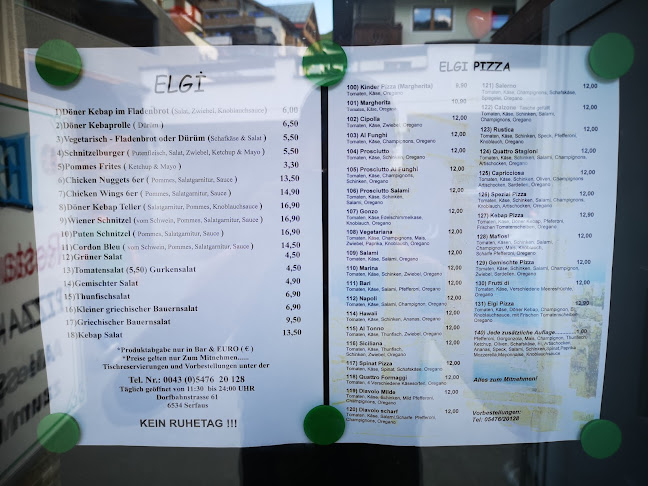 ELGİ
1)Döner Kebap im Fladenbrot (Salat, Zwiebel, Knoblauchsauce) 6,00
2)Döner Kebaprolle ( Dürüm ) 6,50
3)Vegetarisch - Fladenbrot oder Dürüm (Schafkäse & Salat ) 5,50
4)Schnitzelburger ( Putenfleisch, Salat, Zwiebel, Ketchup & Mayo ) 5,50
5)Pommes Frites ( Ketchup & Mayo ) 3,30
6)Chicken Nuggets 6er ( Pommes, Salatgarnitur, Sauce ) 13,50
7)Chicken Wings 6er ( Pommes, Salatgarnitur, Sauce ) 14,90
8)Döner Kebap Teller ( Pommes, Salatgarnitur, Knoblauchsauce ) 16,90
9)Wiener Schnitzel ( vom Schwein, Pommes, Salatgarnitur, Sauce ) 16,90
10)Puten Schnitzel ( Pommes, Salatgarnitur, Sauce ) 16,90
11)Cordon Bleu ( vom Schwein, Pommes, Salatgarnitur, Sauce ) 14,50
12)Grüner Salat 4,50
13)Tomatensalat (5,50) Gurkensalat 4,50
14)Gemischter Salat 4,90
15)Thunfischsalat 6,90
16)Kleiner griechischer Bauernsalat 6,90
17)Griechischer Bauernsalat 9,50
18)Kebap Salat 13,50
*Produktabgabe nur in Bar & EURO ( € )
*Preise gelten nur Zum Mitnehmen.....
Tischreservierungen und Vorbestellungen unter der
Tel. Nr.: 0043 (0)5476 20 128
Täglich geöffnet von 11:30 bis 24:00 UHR
Dorfbahnstrasse 61
6534 Serfaus
KEIN RUHETAG !!!
ELGI PIZZA
100) Kinder Pizza (Margherita)
Tomaten, Käse, Oregano
101) Margherita 10,00
Tomaten, Käse, Oregano
102) Cipolla 12,00
Tomaten, Käse, Zwiebel, Oregano
103) Al Funghi 12,00
Tomaten, Käse, Champignons, Oregano
104) Prosciutto 12,00
Tomaten, Käse, Schinken, Oregano
105) Prosciutto Al Funghi 12,00
Tomaten, Käse, Champignons,
Schinken, Oregano
106) Prosciutto Salami 12,00
Tomaten, Käse, Schinken, Salami, Oregano
107) Gonzo 12,00
Oregano
108) Vegetariana 12,00
Tomaten, Käse, Champignons, Mais,
Zwiebel, Paprika, Knoblauch, Oregano
109) Salami 12,00
Tomaten, Käse, Salami, Oregano
110) Marina 12,00
Tomaten, Käse, Schinken, Zwiebel, Oregano
111) Bari 12,00
Tomaten, Käse, Schinken, Pfefferoni, Oregano
112) Napoli 12,00
Tomaten, Käse, Salami, Champignon, Oregano
114) Hawaii 12,00
Tomaten, Käse, Schinken, Ananas, Oregano
115) Al Tonno 12,00
Tomaten, Käse, Thunfisch, Zwiebel, Oregano
116) Siciliana 12,00
Tomaten, Käse, Thunfisch,
Schinken, Zwiebel, Oregano
117) Spinat Pizza 12,00
Tomaten, Käse, Spinat, Knoblauch, Oregano
118) Quattro Formaggi 12,00
Tomaten, 4 Verschiedene Käsesorten, Oregano
119) Diavolo Milde 12,00
Tomaten, Käse, Schinken, Mild Pfefferoni,
Champignons, Oregano
120) Diavolo scharf 12,00
Tomaten, Käse, Salami, Scharfe Pfefferoni,
Champignons, Oregano
121) Salerno 12,00
Tomaten, Käse, Champignons, Schafskäse,
Oregano
122) Calzone 12,00
Tomaten, Käse, Schinken, Salami,
Champignons, Oregano
123) Rustica 12,00
Tomaten, Käse, Schinken, Speck, Pfefferoni,
Knoblauch, Oregano
124) Quattro Stagioni 12,00
Tomaten, Käse, Schinken, Salami, Champignon,
Artischocken, Oregano
125) Capricciosa 12,00
Tomaten, Käse, Schinken, Oliven, Champignon,
Artischocken, Sardellen, Oregano
126) Spezial Pizza 12,00
Tomaten, Käse, Schinken, Salami, Champignons,
Knoblauch, Artischocken, Oregano
127) Kebap Pizza 12,90
Tomaten, Käse, Döner Kebap, Pfefferoni,
Frischen Tomatenscheiben, Oregano
128) Mafiosi 12,00
Tomaten, Käse, Schinken, Salami,
Champignons, Knoblauch, Mais,
Scharfe Pfefferoni, Oregano
129) Gemischte Pizza 12,00
Tomaten, Käse, Schinken, Salami, Champignon,
Zwiebel, Sardellen, Oregano
130) Frutti di 12,00
Tomaten, Käse, Verschiedene Meeresfrüchte,
Oregano
131) Elgi Pizza 12,90
Tomaten, Käse, Döner Kebap, Champignon,
Knoblauchsauce, mit Frischen Tomatenscheiben
Oregano
140) Jede zusätzliche Auflage 1,00
Pfefferoni, Gorgonzola, Mais, Champignon, Thunfisch,
Ketchup, Oliven, Schafskäse, Ei, Artischocken
Ananas, Speck, Salami, Schinken, Spinat, Paprika
Mozzarella, Mayonnaise, Knoblauchsauce
Alles zum Mitnehmen!
Vorbestellungen:
Tel: 05476/20128